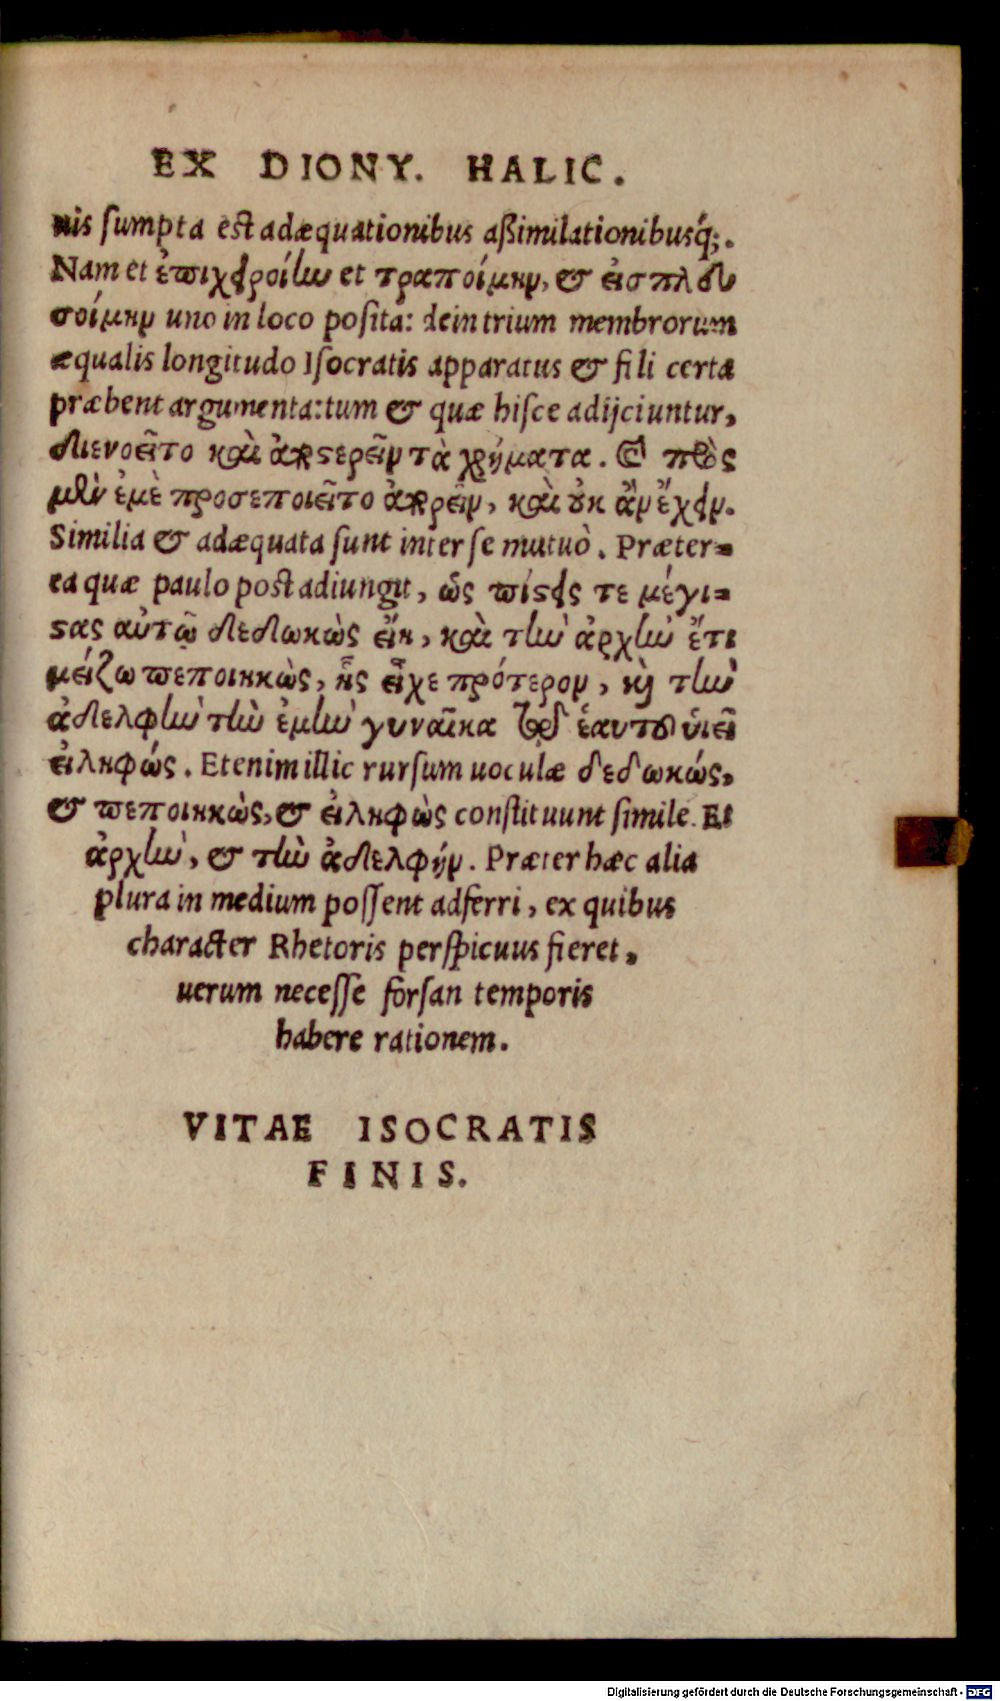 EX DIONY. HALIC.
nis ſumpta est adæquationibus aßimilationibusq́;.
Nam et ἐπιχειροίην et τραποίμην, & εἰσπλευ
σοίμην uno in loco poſita: dein trium membrorum
æqualis longitudo Iſocratis apparatus & fili certa
præbent argumenta: tum & quæ hiſce adijciuntur,
διενοεῖτο καὶ ἀποστερεῖν τὰ χρήματα. & πρὸς
μὲν ἐμὲ προσεποιεῖτο ἀπορεῖν, καὶ οὐκ ἂν ἔχειν.
Similia & adæquata ſunt inter ſe mutuò. Præter=
ea quæ paulo post adiungit, ὥς πίστεις τε μέγι=
στας αὐτῷ δεδωκὼς εἴη, καὶ τὴν ἀρχὴν ἔτι
μείζω πεποιηκὼς, ἧς εἶχε πρότερον, καὶ τὴν
ἀδελφὴν τὴν ἐμὴν γυναῖκα τοῦ ἑαυτοῦ ὑιεῖ
εἰληφώς. Etenim illic rurſum uoculæ δεδωκώς,
& πεποιηκὼς, & εἰληφὼς conſtituunt ſimile. Et
ἀρχὴν, & τὴν ἀδελφήν. Præter hæc alia
plura in medium poſſent adferri, ex quibus
character Rhetoris perſpicuus fieret,
uerum neceſſe forſan temporis
habere rationem.
VITAE ISOCRATIS
FINIS.
Digitalisierung gefördert durch die Deutsche Forschungsgemeinschaft - DFG